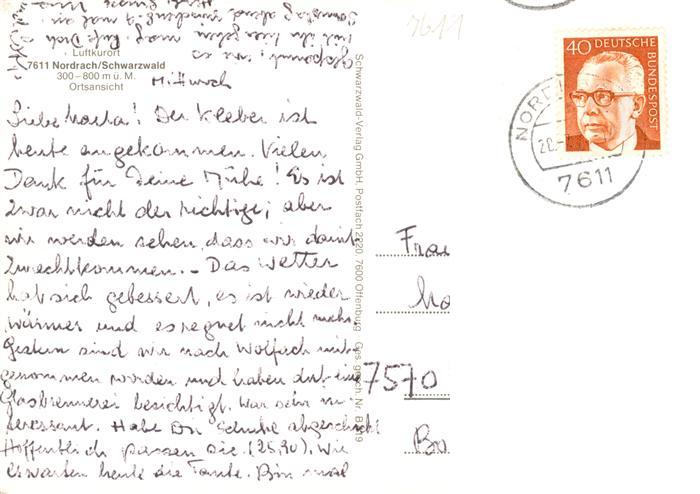 Luftkurort
7611 Nordrach/Schwarzwald
300–800 m ü. M.
Ortsansicht
Mittwoch
Liebe Marta! Der Kleber ist
heute angekommen. Vielen
Dank für Deine Mühe! Es ist
zwar nicht der richtige; aber
wir werden sehen, dass wir damit
zurechtkommen. – Das Wetter
hat sich gebessert, es ist wieder
wärmer und es regnet nicht mehr.
Gestern sind wir nach Wolfach mit-
genommen worden und haben dort eine
Glasbrennerei besichtigt. War sehr in-
teressant. Habe Dir Schuhe abgeschickt
Hoffentlich passen sie. (25,90). Wir
erwarten heute die Tante. Bin mal
gespannt, wie es
mit ihr hier gehen mag. Rufe Dich
Samstag abend zwischen 7 mal an.
Schwarzwald-Verlag GmbH, Postfach 2220, 7600 Offenburg Ges. gesch. Nr. B
7611
40 DEUTSCHE
BUNDESPOST
NORD
20.
7611
Frau
7570